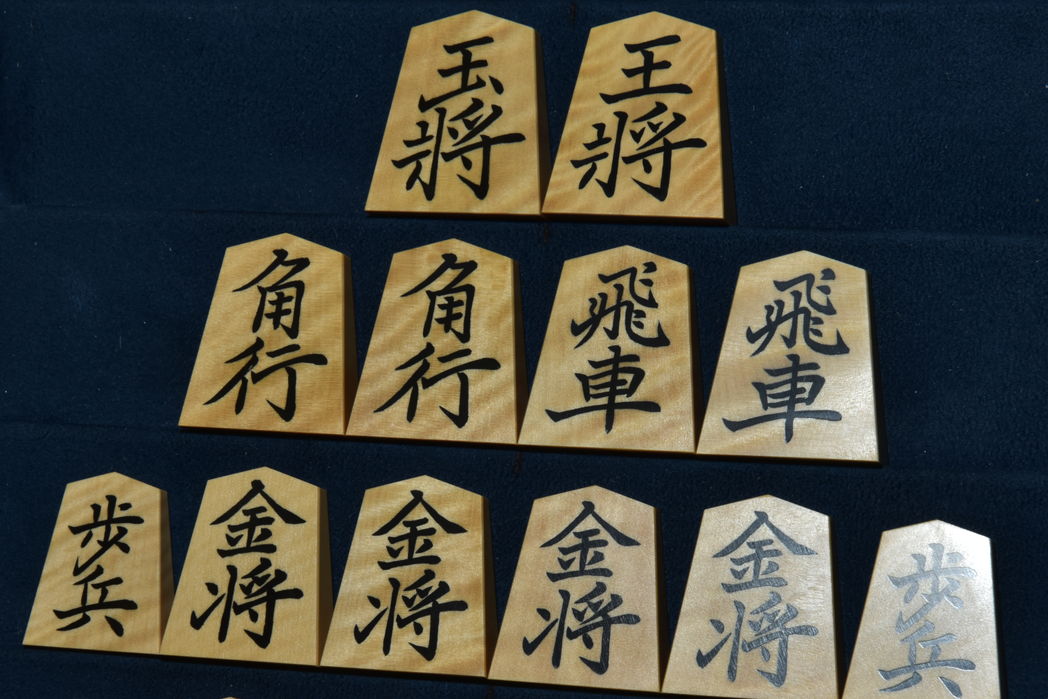 玉將 王將
角行 角行 飛車 飛車
歩兵 金将 金将 金将 金将 歩兵